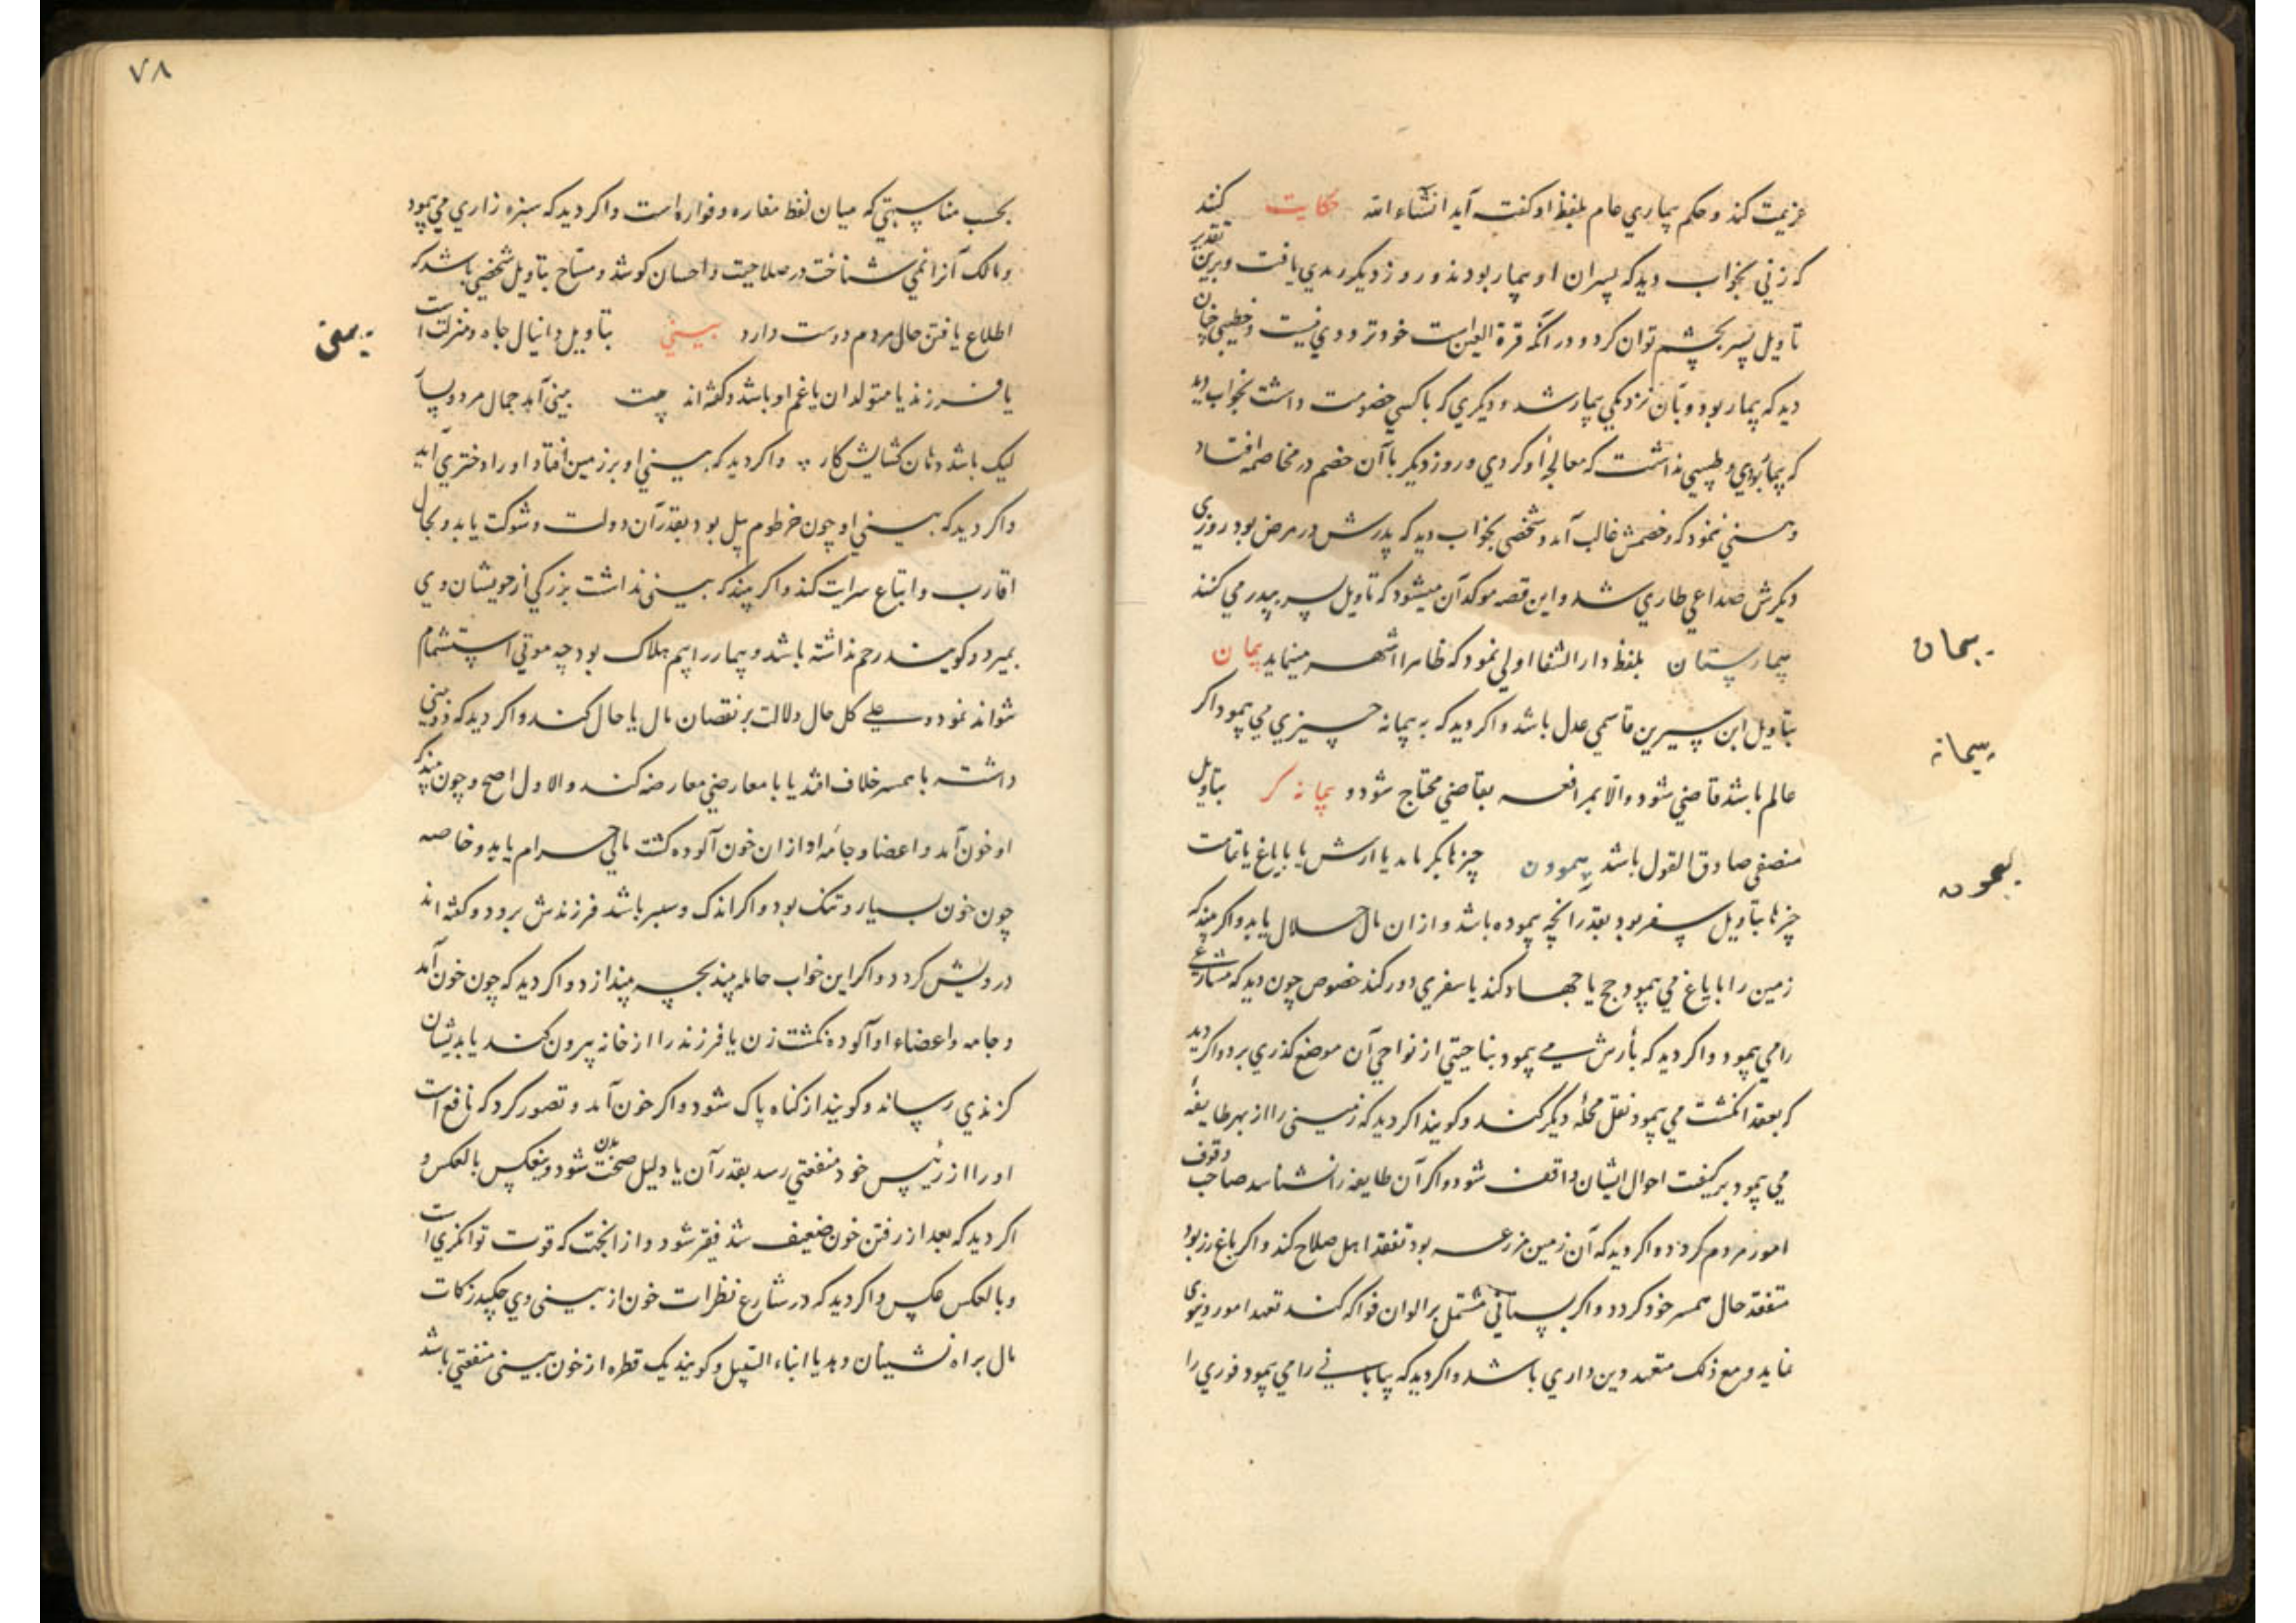 عزیمت کند و حکم بیماری عام بلفظ او کفت آید انشاء الله حکایت کنند
که زنی بخواب دید که پسران او بیمار بودند و روز دیکر رمدی یافت و برین تقدیر
تاویل پسر بچشم توان کرد و در آنکه قرة العین است خود ترددی نیست و خطیبی چنان
دید که بیمار بود و بآن نزدیکی بیمار شد و دیکری که با کسی خصومت داشت بخواب دید
که بیمار بودی و طبیبی نداشت که معالجۀ او کردی و روز دیکر با آن خصم در مخاصمه افتاد
و نمود که خصمش غالب آمد و شخصی بخواب دید که پدرش در مرض بود روزی
دیکرش صداعی طاری شد و این قصه موکد آن میشود که تاویل سر بپدر می کنند
بیمارستان بلفظ دار الشفا اولی نمود که ظاهرا اشهر مینماید پیمان
بتاویل ابن سیرین قاسمی عدل باشد و اکر دید که به پیمانه چیزی می پیمود اکر
عالم باشد قاضی شود و الا بمرافعه بقاضی محتاج شود و پیمانه کر بتاویل
منصفی صادق القول باشد پیمودن چیزها بکر باید یا ارش یا بایاغ یا
چیزها بتاویل سفر بود بقدر آنچه پیموده باشد و از ان مال حلال یابد و اکر بیند که
زمین را بایاغ می پیمود حج یا جهاد کند یا سفری دور کند خصوص چون دید که مشارعی
را می پیمود و اکر دید که بأرش می پیمود بناحیتی از نواحی آن موضع کذری برد و اکر دید
که بعقد انکشت می پیمود نقل محلۀ دیکر کند و کویند اکر دید که زمینی را از بهر طایفۀ
می پیمود بر کیفیت احوال ایشان واقف شود و اکر آن طایفه را نشناسد صاحب وقوف
امور مردم کردد و اکر دید که آن زمین مزرعه بود تفقد اهل صلاح کند و اکر باغ رز بود
متفقد حال همسر خود کردد و اکر بستانی مشتمل بر الوان فواکه کند تعهد امور دنیوی
نماید و مع ذلک متعهد دین داری باشد و اکر دید که بیابانی را می پیمود فوری را
پیمان
پیمانه
پیمودن
٧٨
بحسب مناسبتی که میان لفظ مغاره و فواره است و اکر دید که سبزه زاری می پیمود
و مالک آنرا نمی شناخت در صلاحیت و احسان کوشد و مساح بتاویل شخصی باشد که
اطلاع یافتن حال مردم دوست دارد بینی بتاویل دانیال جاه و منزلت است
یا فرزند یا متولد ان یا غم او باشد و کفته اند بیت بینی آید جمال مرد و پسر
لیک باشد دهان کشایش کار و اکر دید که بینی او بر زمین افتاد او را دختری آید
و اکر دید که بینی او چون خرطوم پیل بود بقدر آن دولت و شوکت یابد و بحال
اقارب و اتباع سرایت کند و اکر بیند که بینی نداشت بزرکی از خویشان وی
بمیرد و کویند رحم نداشته باشد و بیمار را بیم هلاک بود چه موتی استشمام
نتواند نمود و علی کل حال دلالت بر نقصان مال یا حال کند و اکر دید که دو بینی
داشته با همسر خلاف افتد یا با معارضی معارضه کند و الاول اصح و چون بیند که
او خون آمد و اعضا و جامۀ او از ان خون آلوده کشت مالی حرام یابد و خاصه
چون خون بسیار و تنک بود و اکر اندک و سطبر باشد فرزندش برود و کفته اند
درویش کردد و اکر این خواب حامله بیند بچه بیندازد و اکر دید که چون خون آمد
و جامه و اعضاء او آلوده نکشت زن یا فرزند را از خانه بیرون کند یا بدیشان
کزندی رساند و کویند از کناه پاک شود و اکر خون آمد و تصور کرد که نافع است
او را از رئیس خود منفعتی رسد بقدر آن یا دلیل صحت بدن شود و ینعکس بالعکس و
اکر دید که بعد از رفتن خون ضعیف شد فقیر شود و از انجهت که قوت توانکری است
و بالعکس عکس و اکر دید که در شارع قطرات خون از بینی وی چکید زکات
مال براه نشینان دهد یا ابناء السبیل و کویند یک قطره از خون بینی منفعتی باشد
بینی